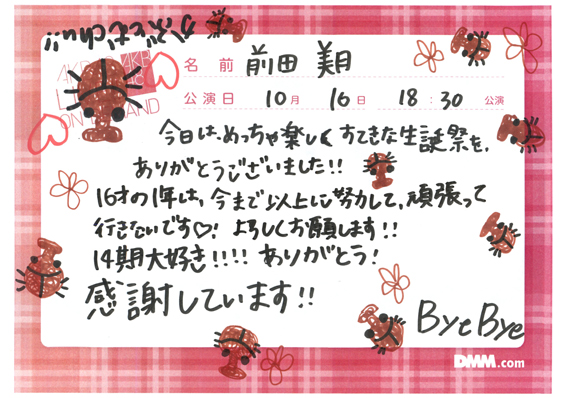 AKB
AKB
ON DEMAND
名前 前田 美月
公演日 10月 16日 18:30 公演
今日は、めっちゃ楽しく すてきな生誕祭を、
ありがとうございました!!
16才の1年は、今まで以上に努力して、頑張って
行きたいです♡! よろしくお願します!!
14期大好き!!!! ありがとう!
感謝しています!!
Bye Bye
DMM.com